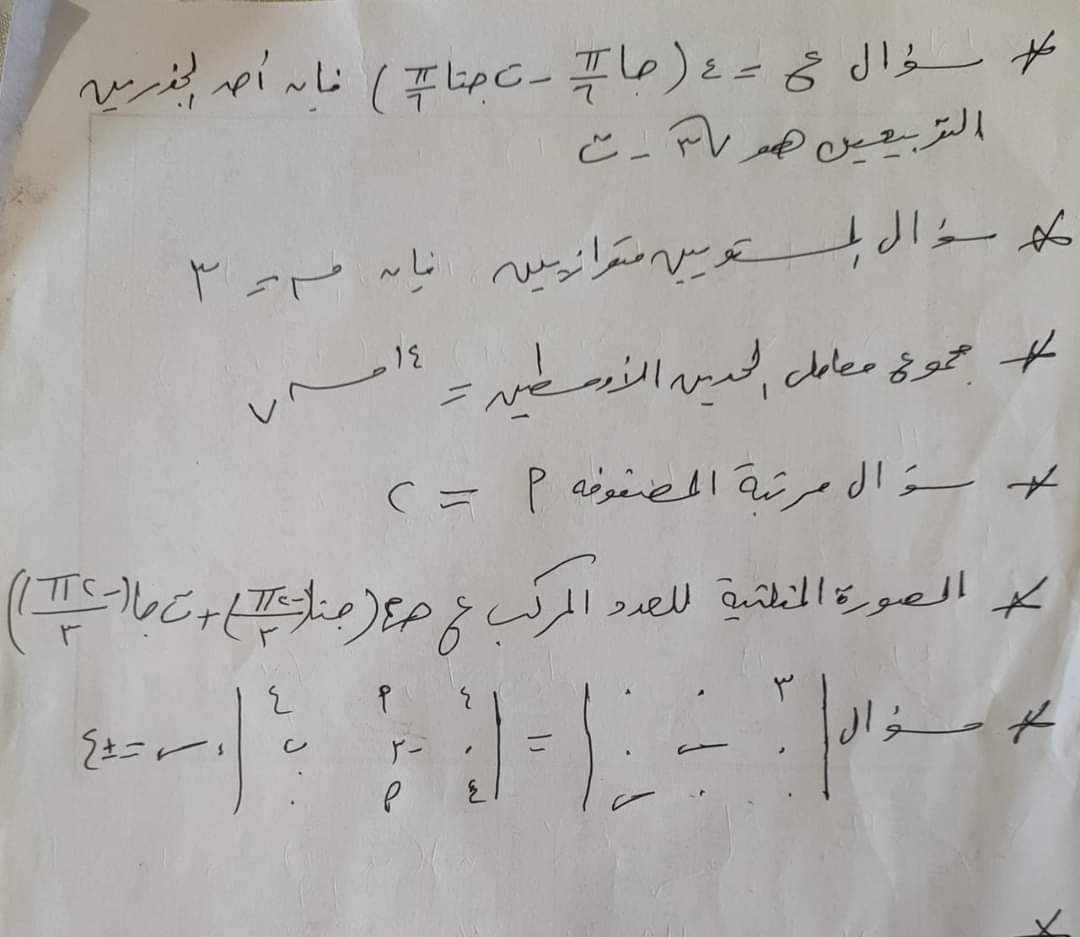 * سؤال ع = ٤ (جا π/٦ - ت جتا π/٦) فإنه أحد الجذرين
التربيعين هو √٣ - ت
* سؤال المستويين متوازيين فإنه م = ٣
* مجموع معامل الحدين الأوسطين = ١٤
* سؤال مرتبة المصفوفه P = ٢
* الصورة المثلثية للعدد المركب ع (جتا(-٢π/٣) + ت جا(-٢π/٣))
* سؤال | ٣ ٠ ٠ | = | ٤ P ٤ | ، س = ±٤
| ٠ س ٠ | | ٠ -٢ ٢ |
| ٠ ٠ س | | ٤ P ٠ |